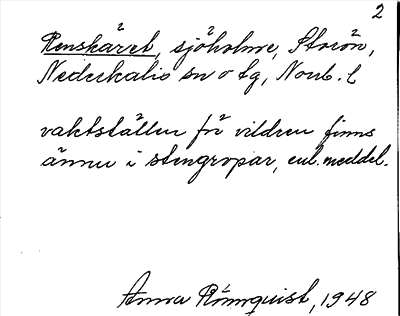 2
Renskäret, sjöholme, Storön,
Nederkalix sn o tg, Norrb. l
vaktställen för vildren finns
ännu i stengropar, enl. meddel.
Anna Rönnquist, 1948